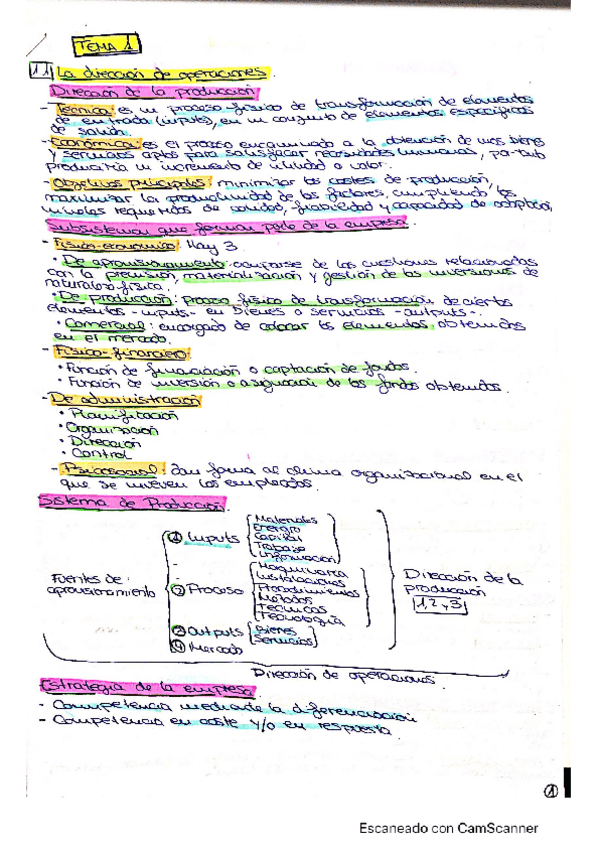 TEMA 1
1.1 La dirección de operaciones.
Dirección de la producción
- Técnica: es un proceso físico de transformación de elementos
de entrada (inputs), en un conjunto de elementos específicos
de salida.
- Económica: es el proceso encaminado a la obtención de unos bienes
y servicios aptos para satisfacer necesidades humanas, por tanto
produciría un incremento de utilidad o valor.
- Objetivos principales: minimizar los costes de producción,
maximizar la productividad de los factores, cumpliendo los
niveles requeridos de calidad, fiabilidad y capacidad de adaptación.
Subsistemas que forman parte de la empresa
- Físico-económico: Hay 3
• De aprovisionamiento: ocuparse de las cuestiones relacionadas
con la previsión, materialización y gestión de las inversiones de
naturaleza física.
• De producción: proceso físico de transformación de ciertos
elementos -inputs- en bienes o servicios -outputs-.
• Comercial: encargado de colocar los elementos obtenidos
en el mercado.
- Físico-financiero:
• Función de financiación o captación de fondos.
• Función de inversión o asignación de los fondos obtenidos.
- De administración
• Planificación
• Organización
• Dirección
• Control
- Psicosocial: dan forma al clima organizacional en el
que se mueven los empleados.
Sistema de Producción
Fuentes de
aprovisionamiento
1 Inputs
Materiales
Energía
Capital
Trabajo
Información
2 Proceso
Maquinaria
Instalaciones
Procedimientos
Métodos
Técnicas
Tecnología
3 Outputs
Bienes
Servicios
4 Mercado
Dirección de la
producción
1, 2 y 3
Dirección de operaciones.
Estrategia de la empresa
- Competencia mediante la diferenciación
- Competencia en coste y/o en respuesta
1
Escaneado con CamScanner